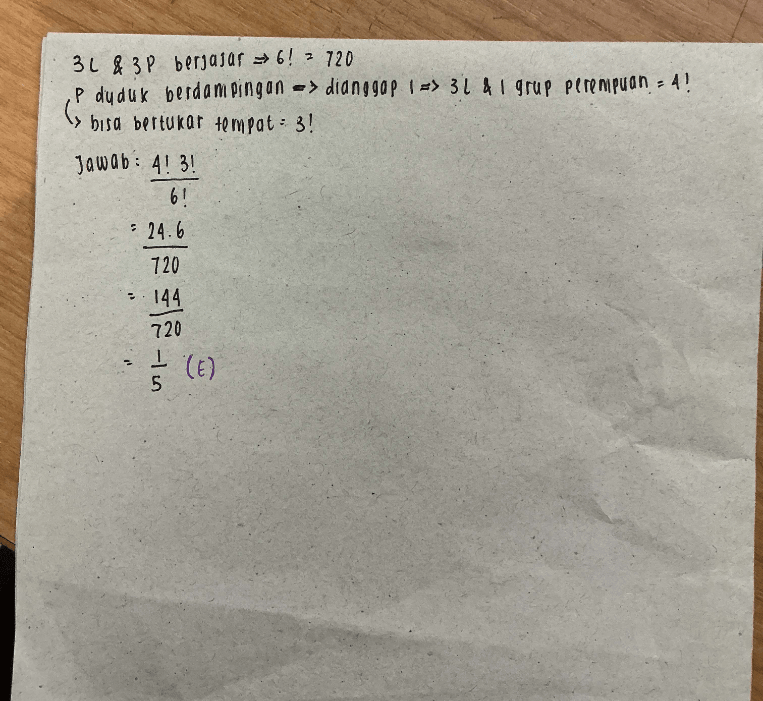 3L & 3P berjajar => 6! = 720
P duduk berdampingan => dianggap 1 => 3L & 1 grup perempuan = 4!
↳ bisa bertukar tempat = 3!
Jawab : 4! 3!
6!
= 24.6
720
= 144
720
= 1
5 (E)